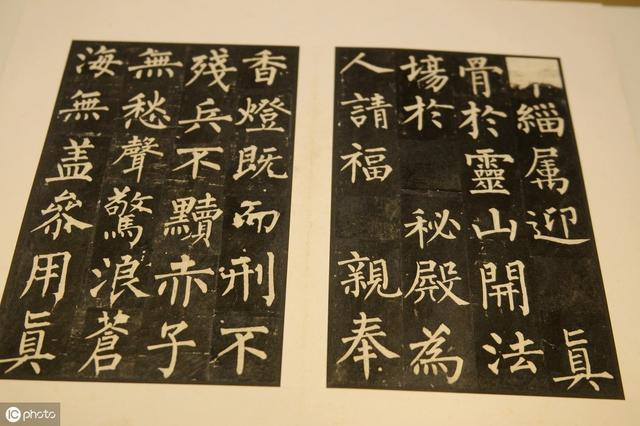 緇属迎 眞
骨於靈山開法
場於 秘殿為
人請福 親奉
香燈既而刑不
殘兵不黷赤子
無愁聲驚浪蒼
海無盖叅用眞
iC photo